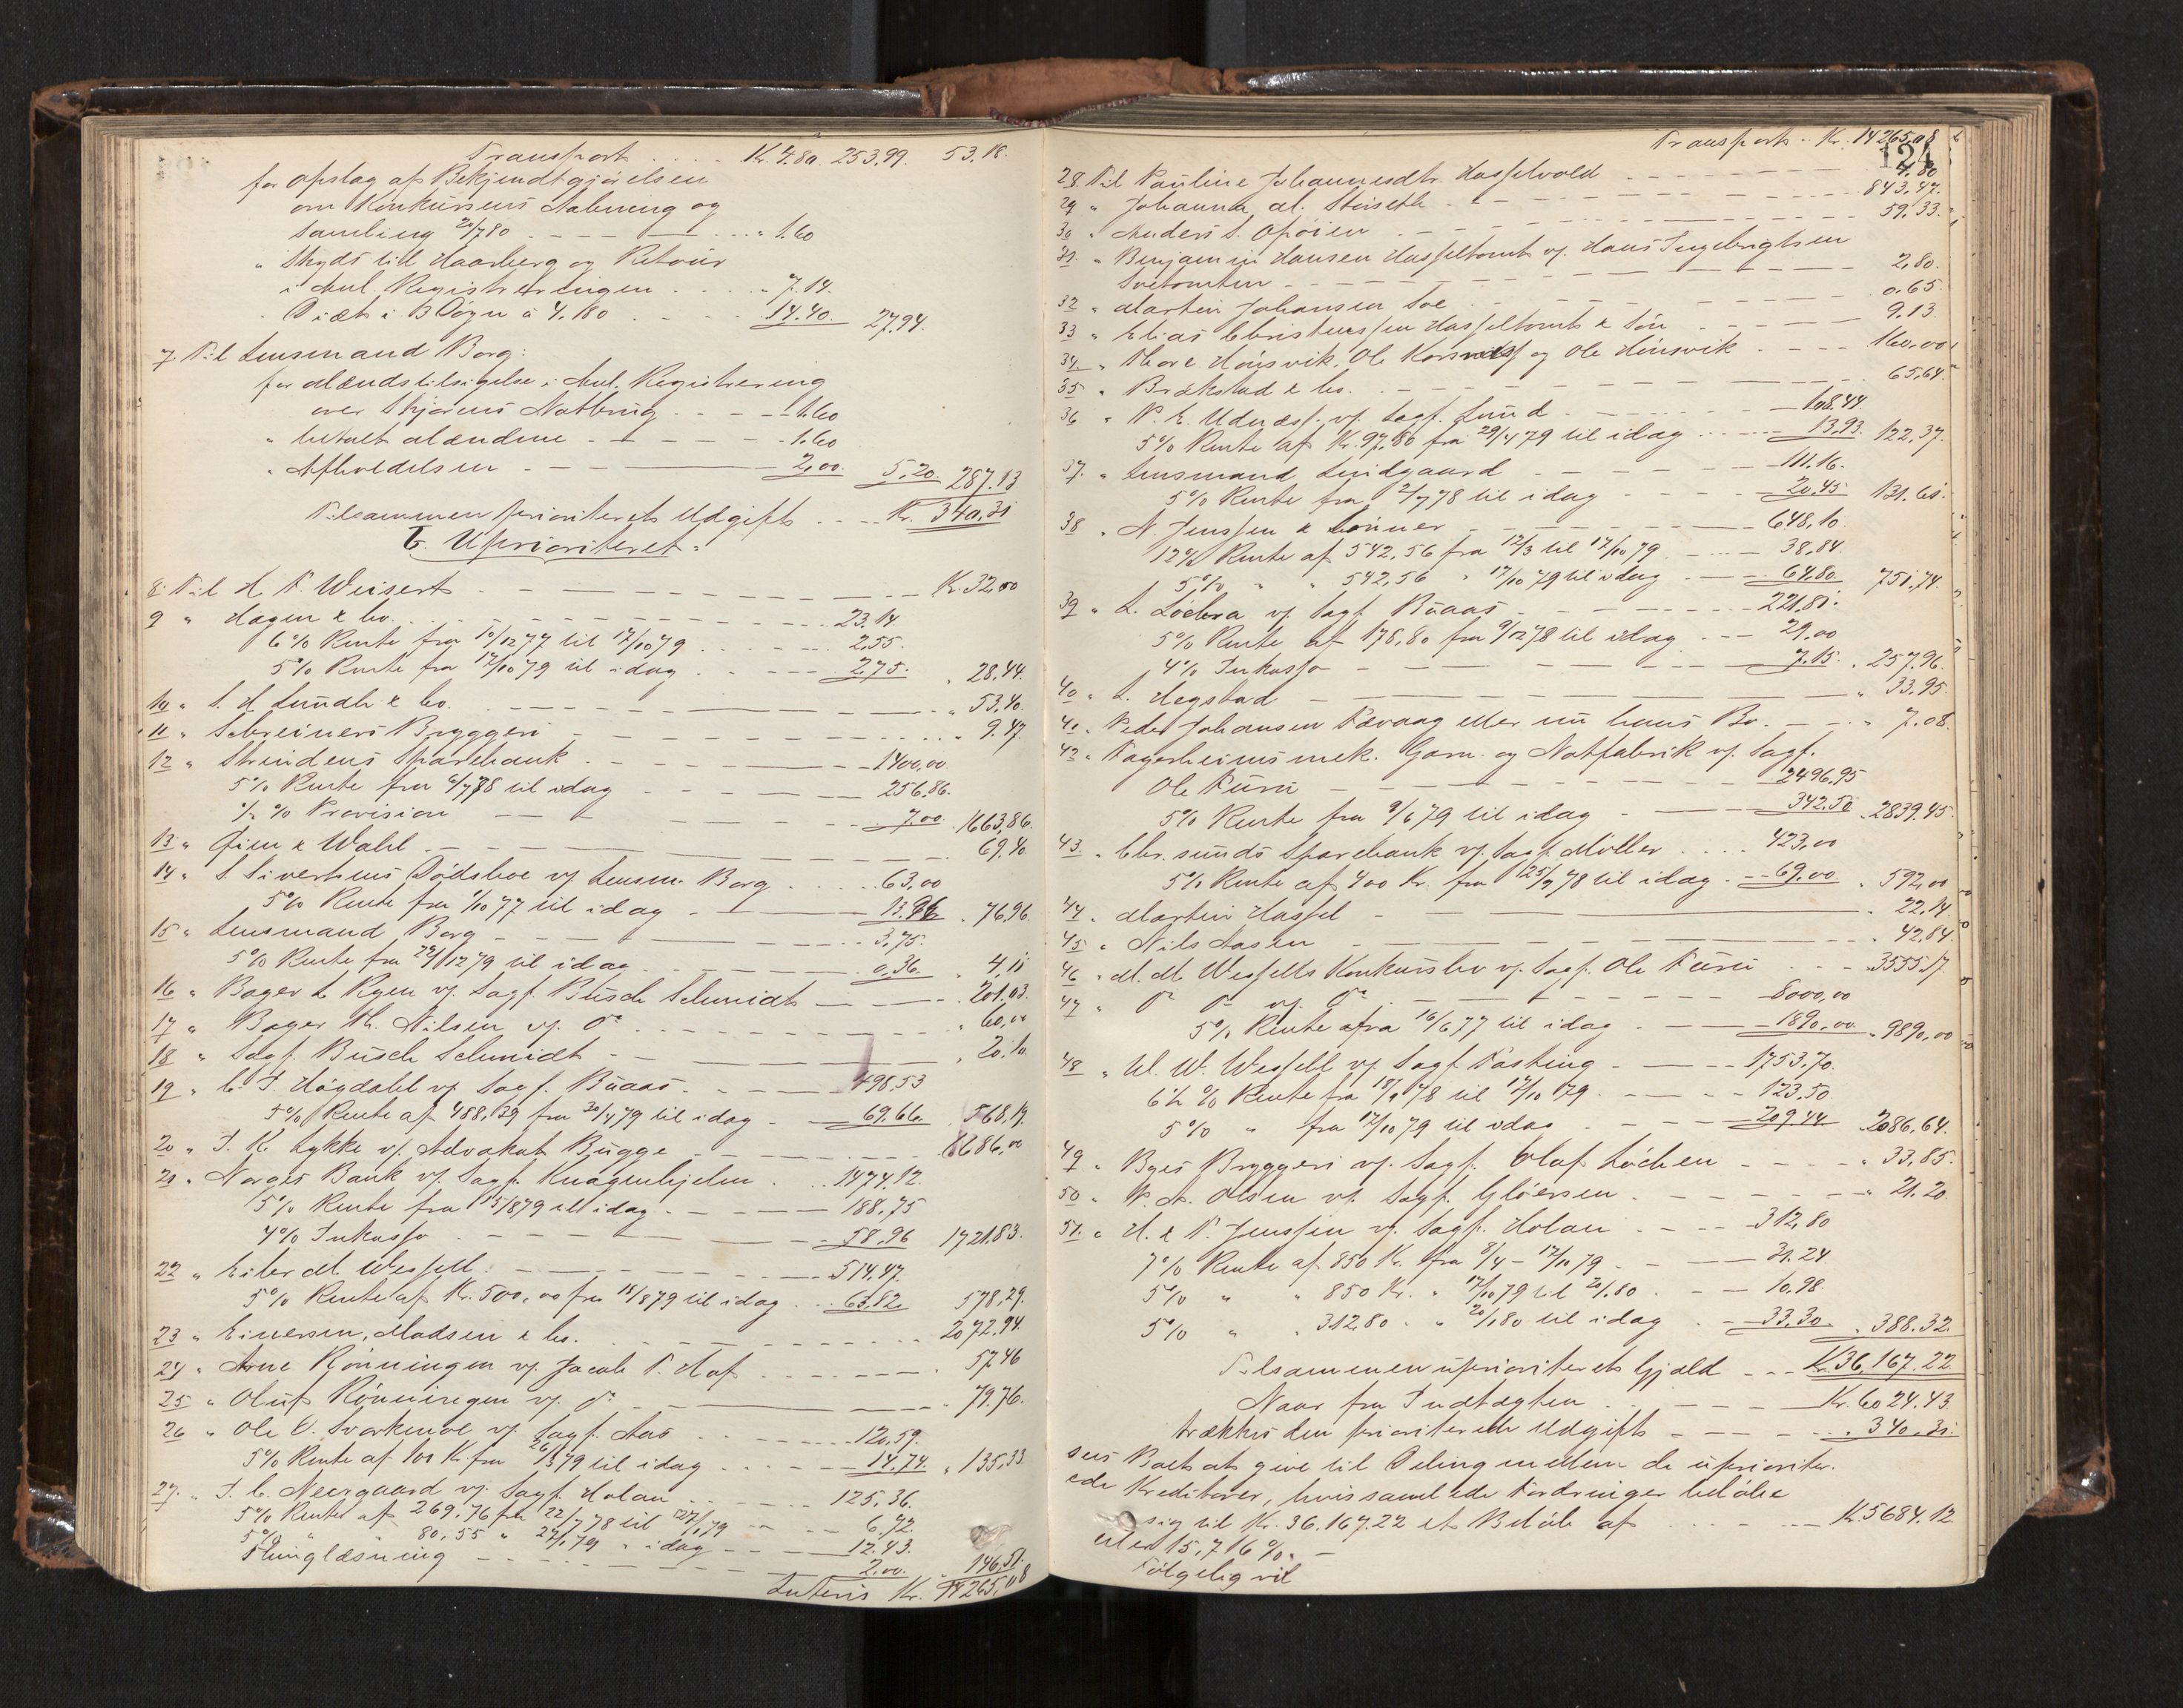 Transport .... Kr. 4.80. 253.99. 53.18.
for Opslag af Bekjendtgjörelsen
om Konkursens Aabning og
Samling 20/7 80 .... " 1.60
" Skyds til Haarberg og Retour
i Anl. Registreringen .... " 7.14.
Diæt i 3 Døgn à 4.80 .... 14.40. 27.94.
7. Til Lensmand Borg:
for Mændstilsigelse i Anl. Registrering
over Skjørens Notbrug .... 1.60
" betalt Mændene .... 1.60
" Afholdelsen .... 2,00. 5.20. 287.13
Tilsammen prioriteret Udgift .... Kr. 340,31
Uprioriteret:
8. Til H. F. Weisert .... Kr. 32,00
9 " Hagen & Co. .... 23.14
6% Rente fra 10/12 77 til 17/10 79 .... 2,55.
5% Rente fra 17/10 79 til idag .... 2,75. " 28.44.
10 " S. H. Lundh & Co. .... " 53.40.
11 " Schreiners Bryggeri .... " 9.47.
12 " Strindens Sparebank .... 1400,00
5% Rente fra 6/7 78 til idag .... 256,86.
1/2 % Provision .... 7.00. 1663,86.
13 " Finn & Wahl .... 69,40.
14 " S. Sivertsens Dödsboe v/ Lensm. Borg .... 63,00
5% Rente fra 1/10 77 til idag .... 13.96 " 76,96.
15 " Lensmand Borg .... 3,75.
5% Rente fra 22/12 79 til idag .... 0,36. " 4,11
16 " Bager L. Ryen v/ Sagf. Busch Schmidt .... 201.03.
17 " Bager Th. Nilsen v/ do .... " 60,00
18 " Sagf. Busch Schmidt .... " 20.10.
19 " C. T. Høgdahl v/ Sagf. Buaas .... 498,53
5% Rente af 488,39 fra 30/4 79 til idag .... 69.66. 568,19.
20 " T. K. Lykke v/ Advokat Bugge .... 8686,00
21 " Norges Bank v/ Sagf. Knagenhjelm .... 1474,12.
5% Rente fra 15/8 79 til idag .... 188,75
4% Inkasso .... 58,96 1721.83.
22 " Eiler M. Wessell .... 514,47.
5% Rente af Kr. 500,00 fra 18/8 79 til idag .... 63,82. 578,29.
23 " Eiversen, Madsen & Co. .... 2072.94.
24 " Arne Rönningen v/ Jacob T. Hof .... 57.46
25 " Oluf Rönningen v/ do .... 79.76.
26 " Ole O. Svorkmoe v/ Sagf. Aas .... 120,59.
5% Rente af 100 Kr. fra 26/3 79 til idag .... 14.74. " 135,33
27. " T. C. Neergaard v/ Sagf. Holan .... 125,36.
5% Rente af 269.76 fra 22/7 78 til 27/1 79 .... 6,72.
5% " " 80,55 " 27/1 79 " idag .... 12.43.
Thinglæsning .... 2,00. 146,51.
Lateris Kr. 14265,08
Transport .. Kr. 14265,08
124
28. Til Pauline Johannesdtr. Hasselvold .... 4,80
29 " Johanna M. Störseth .... 843,47.
30 " Anders S. Opöien .... 59.33.
31. " Benjamin Hansen Hasseltomt v/ Hans Ingebrigtsen
Soetomten .... 2,80.
32 " Martin Johansen Soe .... 0.65
33 " Elias Christenssen Hasseltomt & Sön .... 9.13.
34 " Thore Hönsvik, Ole Korsnæs og Ole Hönsvik .... 160,00
35 " Brækstad & Co. .... 65,64.
36 " P. E. Udnæss v/ Sagf. Lund .... 108.44.
5% Rente af Kr. 97,80 fra 29/4 79 til idag .... 13,93. 122,37.
37. " Lensmand Lindgaard .... 111.16.
5% Rente fra 2/7 78 til idag .... 20,45 131.61.
38 " N. Jenssen & Sönner .... 648,10.
12% Rente af 542,56 fra 12/3 til 17/10 79 .... 38,84.
5% " " 542,56 " 17/10 79 til idag .... 64,80. 751,74.
39 " L. Löchra v/ Sagf. Buaas .... 221,81.
5% Rente af 178,80 fra 9/12 78 til idag .... 29,00
4% Inkasso .... 7.15. " 257.96.
40 " L. Hegstad .... " 33.95.
41. " Peder Johansen Farvaag eller nu hans Bo. .... " 7.08.
42 " Fagerheims mek. Garn- og Notfabrik v/ Sagf.
Ole Furu .... 2496,95
5% Rente fra 9/6 79 til idag .... 342.50 2839.45.
43. " Chr.sunds Sparebank v/ Sagf. Möller .... 423,00
5% Rente af 400 Kr. fra 25/9 78 til idag .... 69.00. " 592,00
44 " Martin Hassel .... 22.14.
45 " Nils Aasen .... " 42,84.
46 " M. M. Wessells Konkursbo v/ Sagf. Ole Furu .... 3555.17.
47 " do do v/ do .... 8000,00
5% Rente fra 16/6 77 til idag .... 1890,00. " 9890,00
48 " W. W. Wessell v/ Sagf. Fasting .... 1753,70.
6 1/2 % Rente fra 18/9 78 til 17/10 79 .... 123.50
5% " fra 17/10 79 til idag .... 209.44. 2086,64.
49 " Byes Bryggeri v/ Sagf. Olaf Löchen .... " 33,85.
50 " P. A. Olsen v/ Sagf. Glöersen .... " 21.20.
51. " H. & P. Jenssen v/ Sagf. Holan .... 312,80
7% Rente af 850 Kr. fra 8/4 - 17/10 79 .... 31.24
5% " " 850 Kr. " 17/10 79 til 20/1 80 .... 10,98.
5% " " 312,80 " 20/1 80 til idag .... 33.30. " 388.32.
Tilsammen uprioriteret Gjæld .... Kr. 36,167.22
Naar fra Indtægten .... Kr. 6024.43.
trækkes den prioriterede Udgift .... " 340.31.
sees Boet at give til Deling mellem de uprioriter-
ede Kreditorer, hvis samlede Fordringer beløbe
sig til Kr. 36.167.22 et Beløb af .... Kr. 5684.12
eller 15,716 %. —
Fölgelig vil